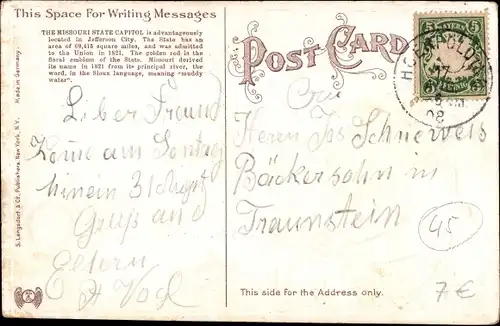 This Space For Writing Messages
THE MISSOURI STATE CAPITOL is advantageously
located in Jefferson City. The State has an
area of 69,415 square miles, and was admitted
to the Union in 1821. The golden rod is the
floral emblem of the State. Missouri derived
its name in 1821 from its principal river, the
word, in the Sioux language, meaning "muddy
water".
Made in Germany.
S. Langsdorf & Co. Publishers, New York, N.Y.
Lieber Freund
am Sontag
hinein 31 August
Gruß und
Eltern
Vogl
POST CARD
5 BAYERN 5
08
Herrn Jos Schneweis
Bäckersohn in
Traunstein
45
This side for the Address only.
7€